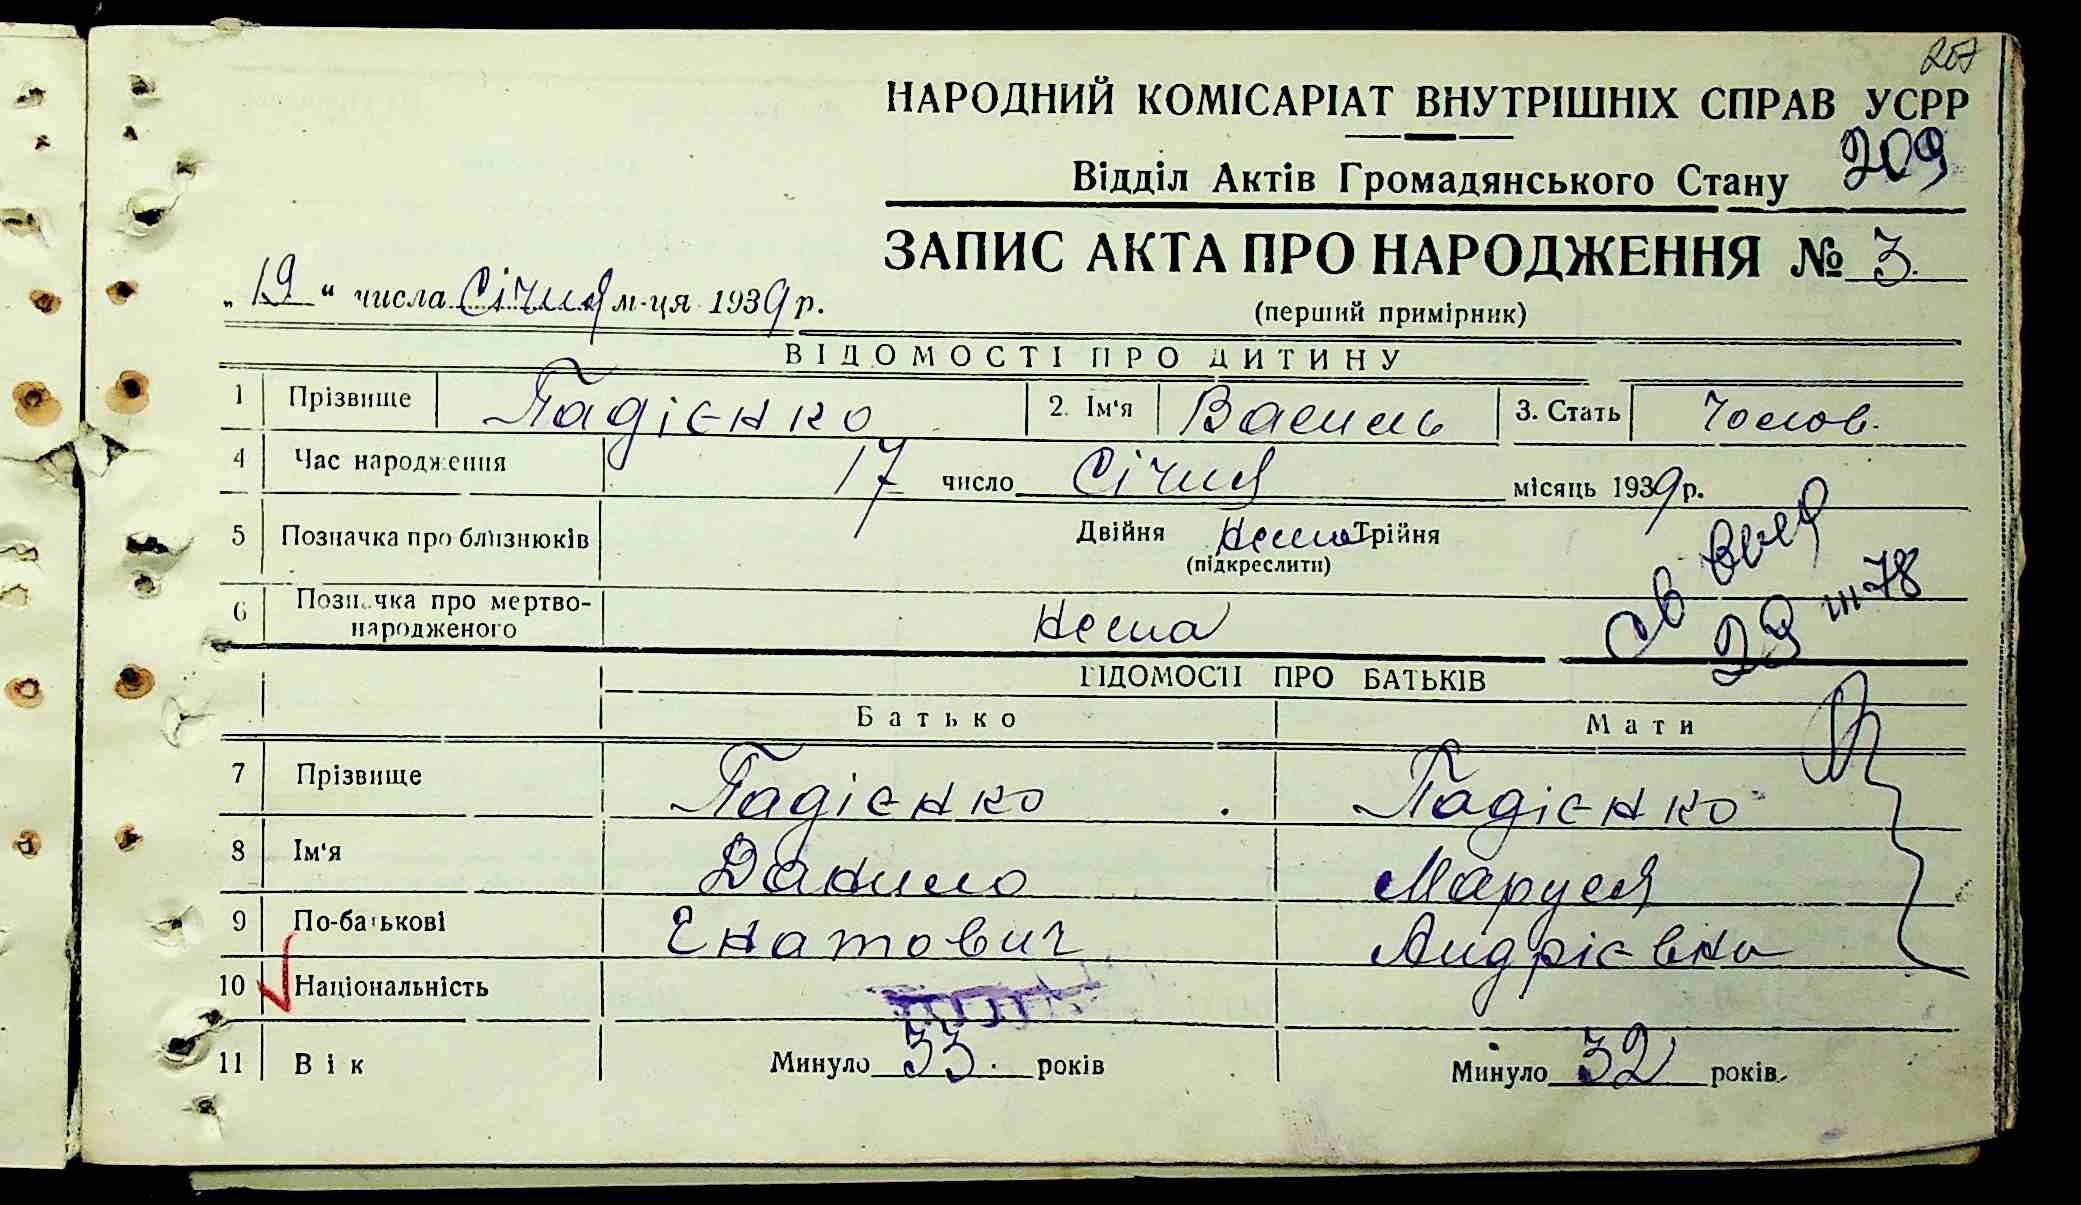 207
НАРОДНИЙ КОМІСАРІАТ ВНУТРІШНІХ СПРАВ УСРР
209
Відділ Актів Громадянського Стану
ЗАПИС АКТА ПРО НАРОДЖЕННЯ № 3.
„19“ числа Січня м-ця 1939 р.
(перший примірник)
ВІДОМОСТІ ПРО ДИТИНУ
1 Прізвище Гадієнко 2. Ім'я Василь 3. Стать Чолов.
4 Час народження 17 число Січня місяць 1939 р.
5 Позначка про близнюків Двійня Нема Трійня
(підкреслити)
6 Позначка про мертво-
народженого Нема
28 III 78
ВІДОМОСТІ ПРО БАТЬКІВ
Батько Мати
7 Прізвище Гадієнко Гадієнко
8 Ім'я Данило Маруся
9 По-батькові Єнатович Андрієвна
10 Національність
11 Вік Минуло 33. років Минуло 32 років